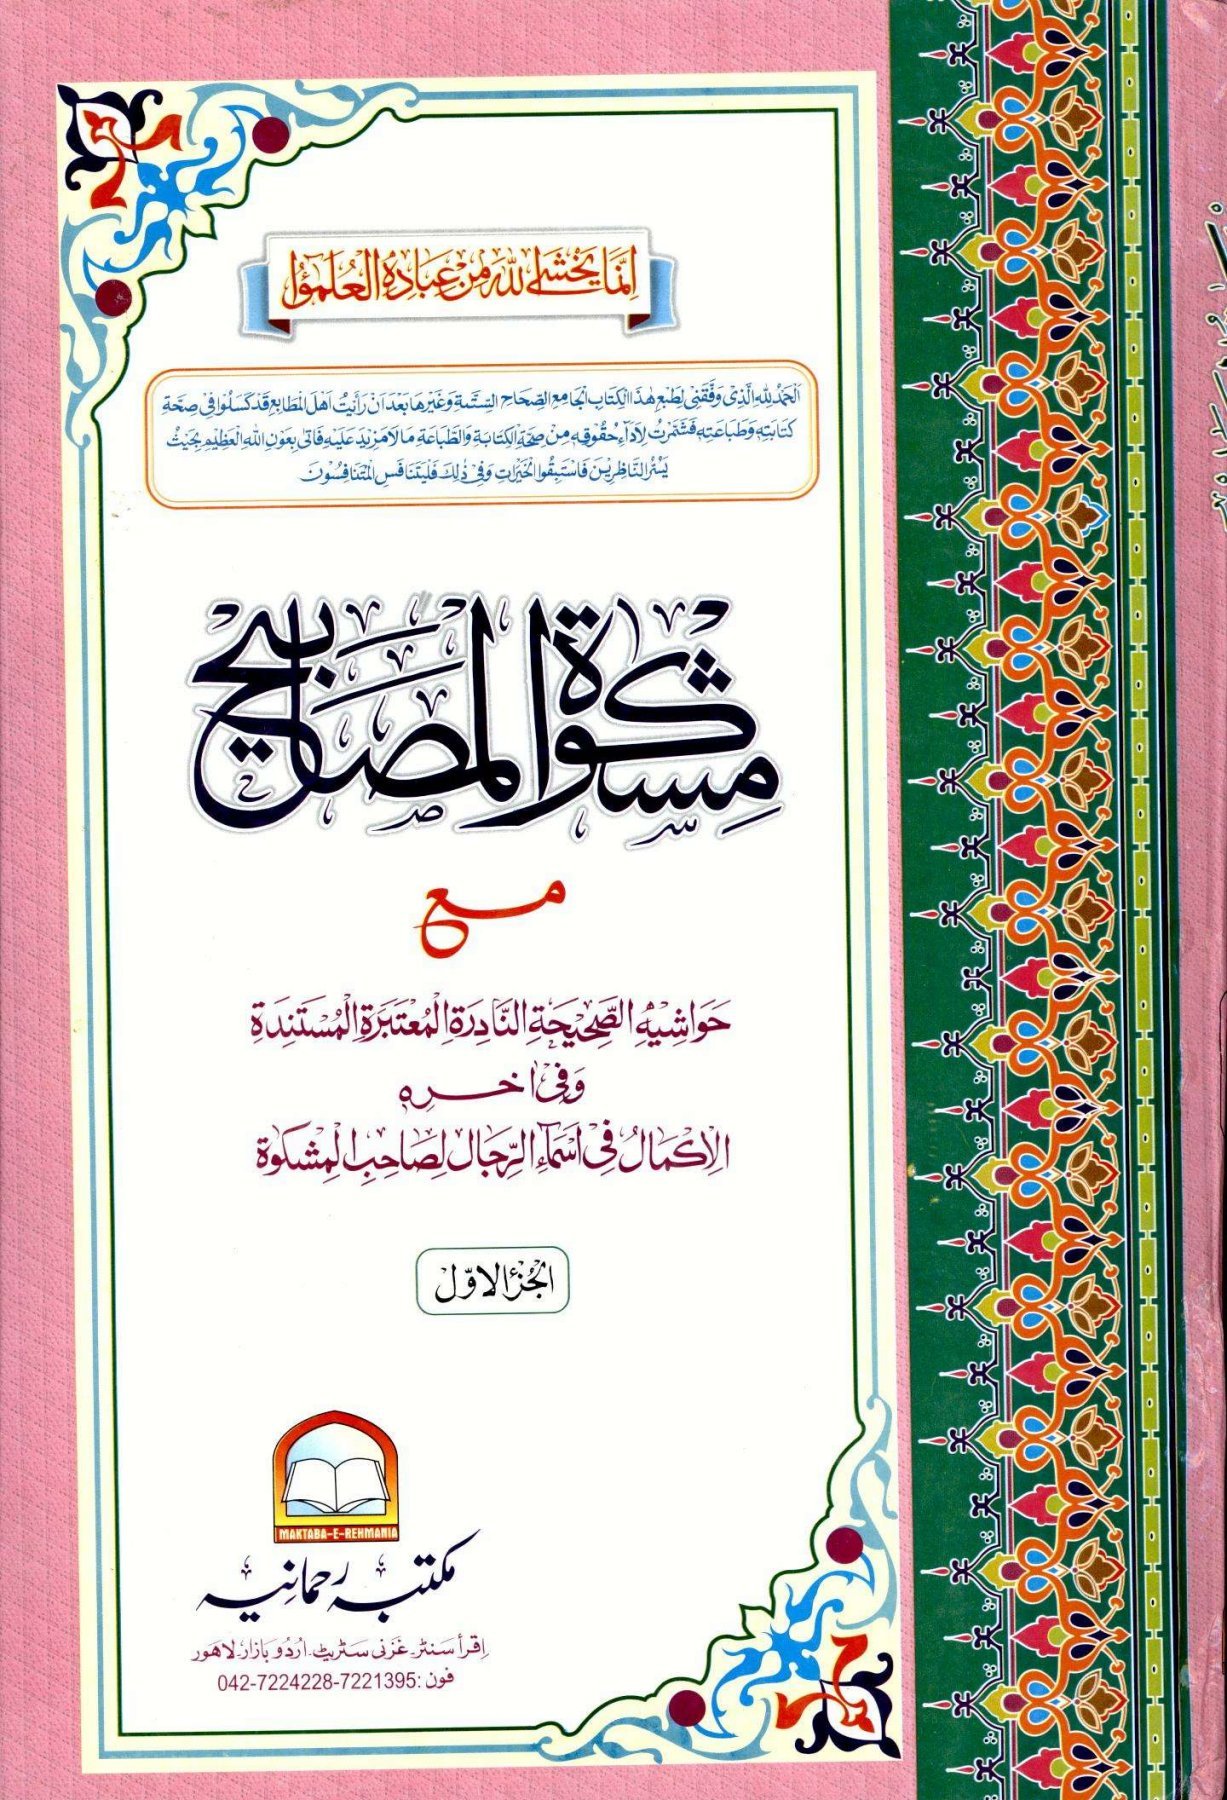 اِنَّمَا يَخْشَى اللّٰهَ مِنْ عِبَادِهِ الْعُلَمٰٓؤُا
اَلْحَمْدُ لِلّٰهِ الَّذِىْ وَفَّقَنِىْ لِطَبْعِ هٰذَا الْكِتَابِ الْجَامِعِ الصِّحَاحِ السِّتَّةِ وَغَيْرِهَا بَعْدَ اَنْ رَأَيْتُ اَهْلَ الْمَطَابِعِ قَدْ كَسَلُوْا فِىْ صِحَّةِ
كِتَابَتِهٖ وَطِبَاعَتِهٖ فَشَمَّرْتُ لِاَدَآءِ حُقُوْقِهٖ مِنْ صِحَّةِ الْكِتَابَةِ وَالطِّبَاعَةِ مَا لَا مَزِيْدَ عَلَيْهِ فَاَتٰى بِعَوْنِ اللّٰهِ الْعَظِيْمِ بِحَيْثُ
يَسُرُّ النَّاظِرِيْنَ فَاسْتَبِقُوا الْخَيْرَاتِ وَفِىْ ذٰلِكَ فَلْيَتَنَافَسِ الْمُتَنَافِسُوْنَ
مِشْكٰوةُ الْمَصَابِيْحِ
مع
حَوَاشِيْهِ الصَّحِيْحَةِ النَّادِرَةِ الْمُعْتَبَرَةِ الْمُسْتَنِدَةِ
وَفِىْ اٰخِرِهٖ
اَلْاِكْمَالُ فِىْ اَسْمَآءِ الرِّجَالِ لِصَاحِبِ الْمِشْكٰوةِ
اَلْجُزْءُ الْاَوَّلُ
MAKTABA-E-REHMANIA
مکتبہ رحمانیہ
اِقرأ سَنٹر۔ غَزنی سٹریٹ۔ اُردُو بازار۔ لاهور
فون :042-7224228-7221395